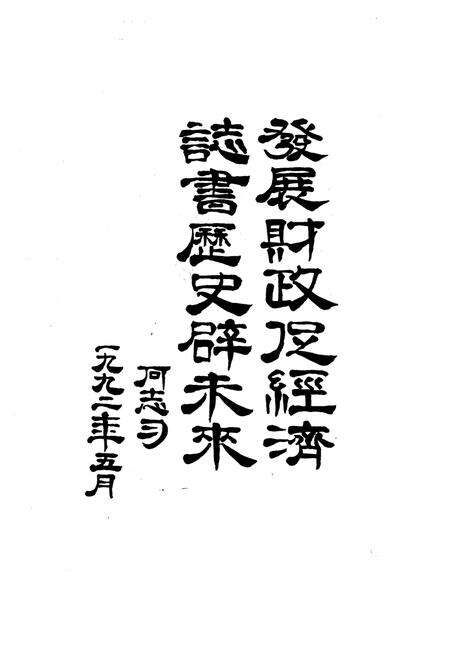 發展財政促經濟
誌書歷史辟未來
何志
一九九二年五月